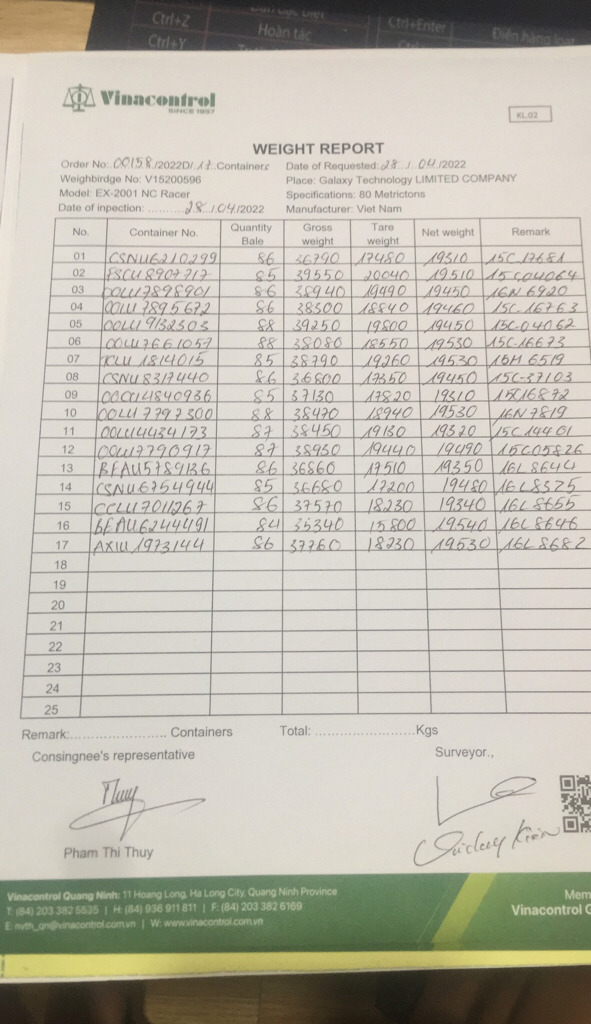 Ctrl+Z
Hoàn tác
Ctrl+Enter
Ctrl+Y
Vinacontrol
SINCE 1957
KL.02
WEIGHT REPORT
Order No: 00158/2022D/ 17 Containers Date of Requested: 28 / 04/2022
Weighbirdge No: V15200596 Place: Galaxy Technology LIMITED COMPANY
Model: EX-2001 NC Racer Specifications: 80 Metrictons
Date of inpection: ......... 28 /04/2022 Manufacturer: Viet Nam
No. Container No. Quantity Bale Gross weight Tare weight Net weight Remark
01 CSNU6210299 86 36790 17480 19310 15C 17681
02 FSCU8907717 85 39550 20040 19510 15C04064
03 OOLU7898901 86 38940 19490 19450 16N 6920
04 OOLU7895672 86 38300 18840 19460 15C-16763
05 OOLU9132503 88 39250 19800 19450 15C-04062
06 OOLU7661057 88 38080 18550 19530 15C-16673
07 TCLU 1814015 85 38790 19260 19530 16M 6519
08 CSNU8317440 86 36800 17350 19450 15C-37103
09 85 37130 17820 19310 15C16872
10 OOLU7797300 88 38470 18940 19530 16N 7819
11 OOLU4434173 87 38450 19130 19320 15C 14461
12 OOLU7790917 87 38930 19440 19490 15C05826
13 BEAU5789136 86 36860 17510 19350 16L 8644
14 CSNU6754944 85 36680 17200 19480 16L8325
15 CCLU7011267 86 37570 18230 19340 16L 8655
16 BEAU6244491 84 35340 15800 19540 16L 8646
17 AXIU 1973144 86 37760 18230 19530 16L 8682
18
19
20
21
22
23
24
25
Remark:........................ Containers Total: .........................Kgs
Consingnee's representative Surveyor.,
Thuy
Pham Thi Thuy
Vinacontrol Quang Ninh: 11 Hoang Long, Ha Long City, Quang Ninh Province
T: (84) 203 382 5535 | H: (84) 936 911 811 | F: (84) 203 382 6169
E: nvth_qn@vinacontrol.com.vn | W: www.vinacontrol.com.vn
Mem
Vinacontrol G